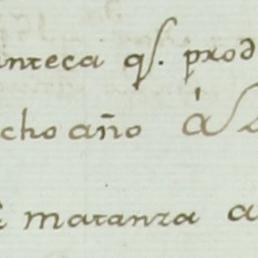 anteca qſ. prod
cho año á
matanza a